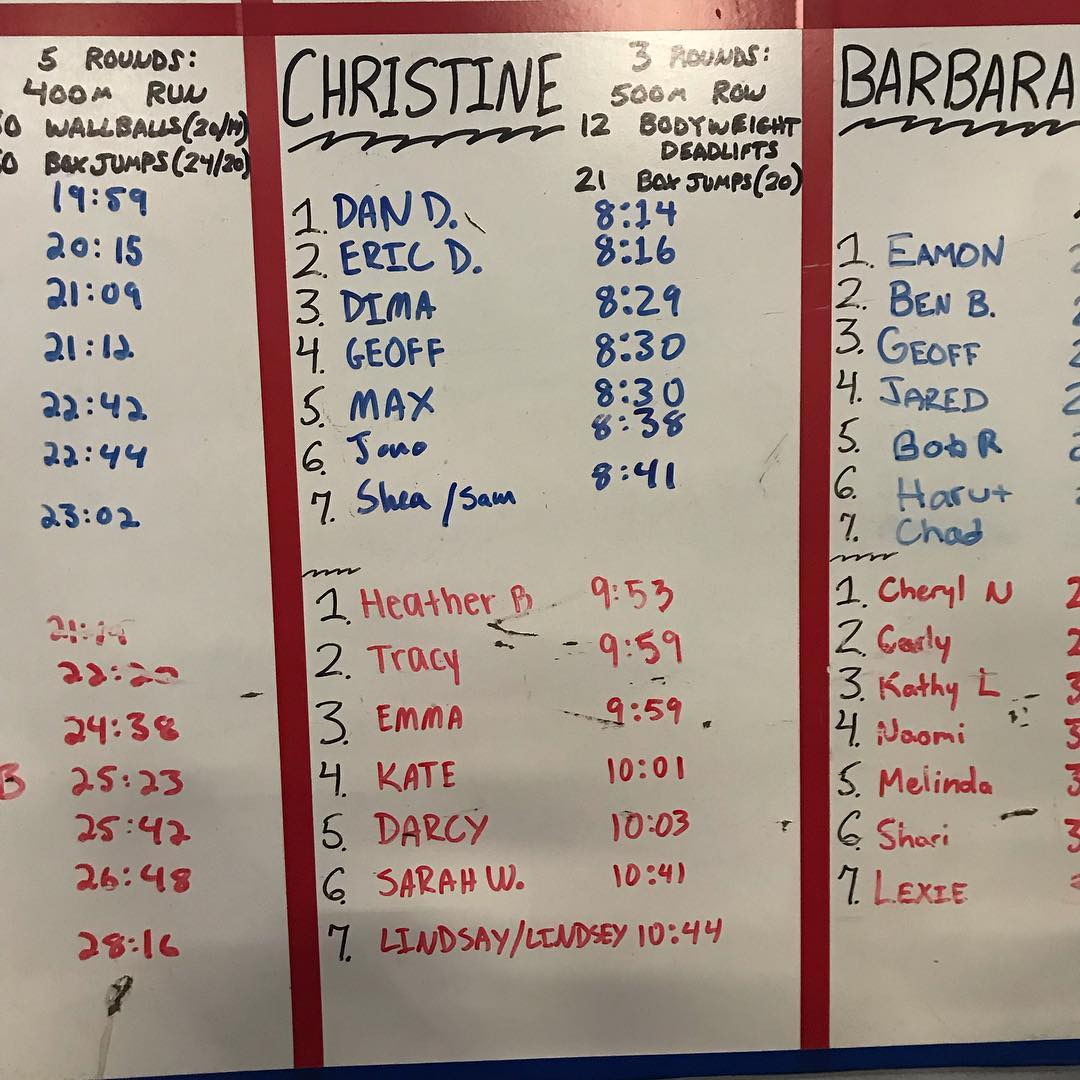 5 ROUNDS:
400M RUN
WALLBALLS (20/14)
BOX JUMPS (24/20)
19:59
20:15
21:09
21:12
22:42
22:44
23:02
24:38
B 25:23
25:42
26:48
28:16
CHRISTINE
3 ROUNDS:
500M ROW
12 BODYWEIGHT
DEADLIFTS
21 BOX JUMPS (20)
1. DAN D. 8:14
2. ERIC D. 8:16
3. DIMA 8:29
4. GEOFF 8:30
5. MAX 8:30
6. Jono 8:38
7. Shea/Sam 8:41
1. Heather B 9:53
2. Tracy 9:59
3. EMMA 9:59
4. KATE 10:01
5. DARCY 10:03
6. SARAH W. 10:41
7. LINDSAY/LINDSEY 10:44
BARBARA
1. EAMON
2. BEN B.
3. GEOFF
4. JARED
5. Bob R
6. Harut
7. Chad
1. Cheryl N
2. Carly
3. Kathy L
4. Naomi
5. Melinda
6. Shari
7. LEXIE